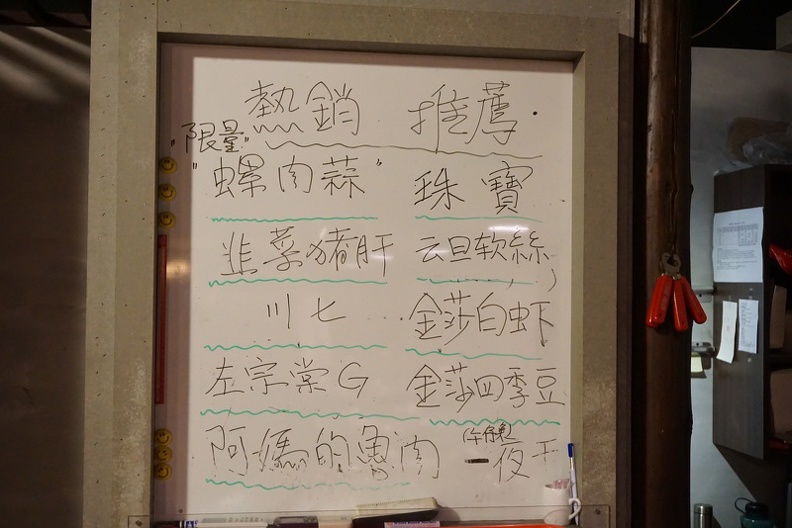 熱銷 推薦.
"限量"
"螺肉蒜" 珠寶
韭菜猪肝 云旦软絲
川七 金莎白虾
左宗棠G 金莎四季豆
阿媽的魯肉 (午魚) 一夜干